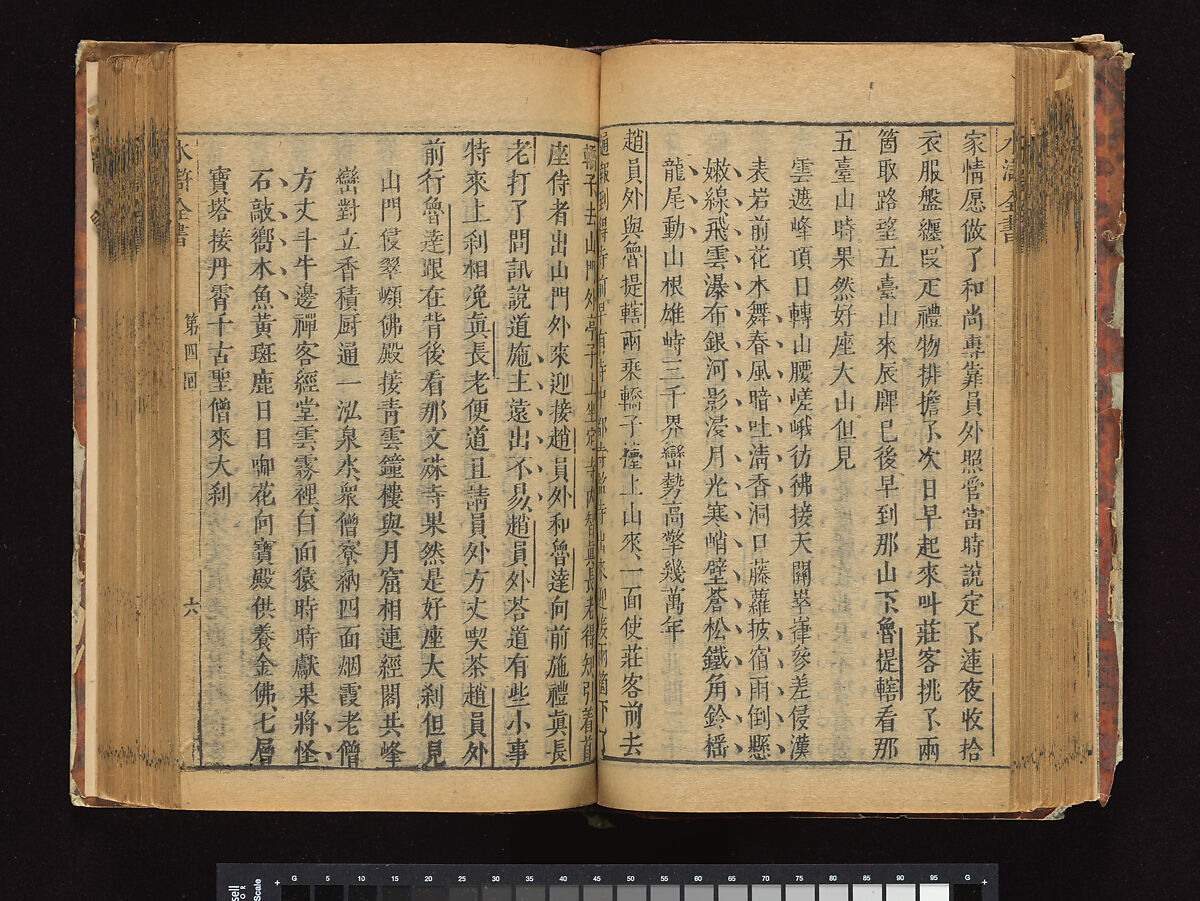 水滸全書
家情愿做了和尚專靠員外照管當時說定了連夜收拾
衣服盤纏叚疋禮物排擔了次日早起來叫莊客挑了兩
箇取路望五臺山來辰牌已後早到那山下魯提轄看那
五臺山時果然好座大山但見
雲遮峰頂日轉山腰嵯峨彷彿接天關崒嵂參差侵漢
表岩前花木舞春風暗吐清香洞口藤蘿披宿雨倒懸
嫩線飛雲瀑布銀河影浸月光寒峭壁蒼松鐵角鈴搖
龍尾動山根雄峙三千界巒勢高擎幾萬年
趙員外與魯提轄兩乘轎子擡上山來一面使莊客前去
通報到得寺前早有寺中都寺監寺出來迎接兩箇下了
轎子去山門外亭子上坐定寺內智眞長老得知引着首
座侍者出山門外來迎接趙員外和魯達向前施禮眞長
老打了問訊說道施主遠出不易趙員外荅道有些小事
特來上剎相凂眞長老便道且請員外方丈喫茶趙員外
前行魯達跟在背後看那文殊寺果然是好座大剎但見
山門侵翠嶺佛殿接青雲鐘樓與月窟相連經閣共峰
巒對立香積厨通一泓泉水衆僧寮納四面烟霞老僧
方丈斗牛邊禪客經堂雲霧裡白面猿時時獻果將怪
石敲嚮木魚黃斑鹿日日啣花向寶殿供養金佛七層
寶塔接丹霄千古聖僧來大剎
水滸全書
第四回
六
G 5 10 15 20 25 30 35 40 45 50 55 60 65 70 75 80 85 90 95 G
Scale